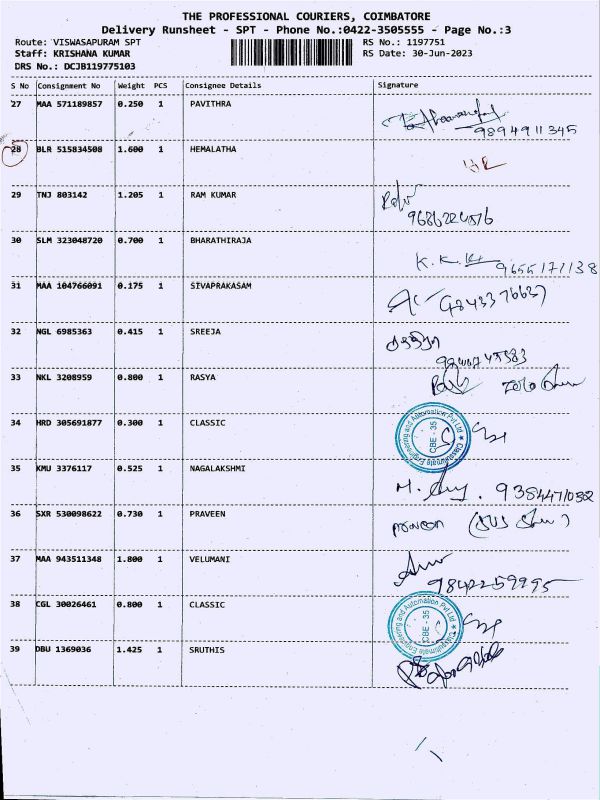 THE PROFESSIONAL COURIERS, COIMBATORE
Delivery Runsheet - SPT - Phone No.:0422-3505555 - Page No.:3
Route: VISWASAPURAM SPT RS No.: 1197751
Staff: KRISHANA KUMAR RS Date: 30-Jun-2023
DRS No.: DCJB119775103
S No Consignment No Weight PCS Consignee Details Signature
27 MAA 571189857 0.250 1 PAVITHRA
9894911345
28 BLR 515834508 1.600 1 HEMALATHA
29 TNJ 803142 1.205 1 RAM KUMAR
30 SLM 323048720 0.700 1 BHARATHIRAJA
K.K.K 9655171138
31 MAA 104766091 0.175 1 SIVAPRAKASAM
9843376637
32 NGL 6985363 0.415 1 SREEJA
33 NKL 3208959 0.800 1 RASYA
34 HRD 305691877 0.300 1 CLASSIC
Engineering and Automation Pvt Ltd
CBE - 35
35 KMU 3376117 0.525 1 NAGALAKSHMI
M. 93844710382
36 SXR 530098622 0.730 1 PRAVEEN
praveen
37 MAA 943511348 1.800 1 VELUMANI
9842259995
38 CGL 30026461 0.800 1 CLASSIC
Engineering and Automation Pvt Ltd
CBE - 35
39 DBU 1369036 1.425 1 SRUTHIS